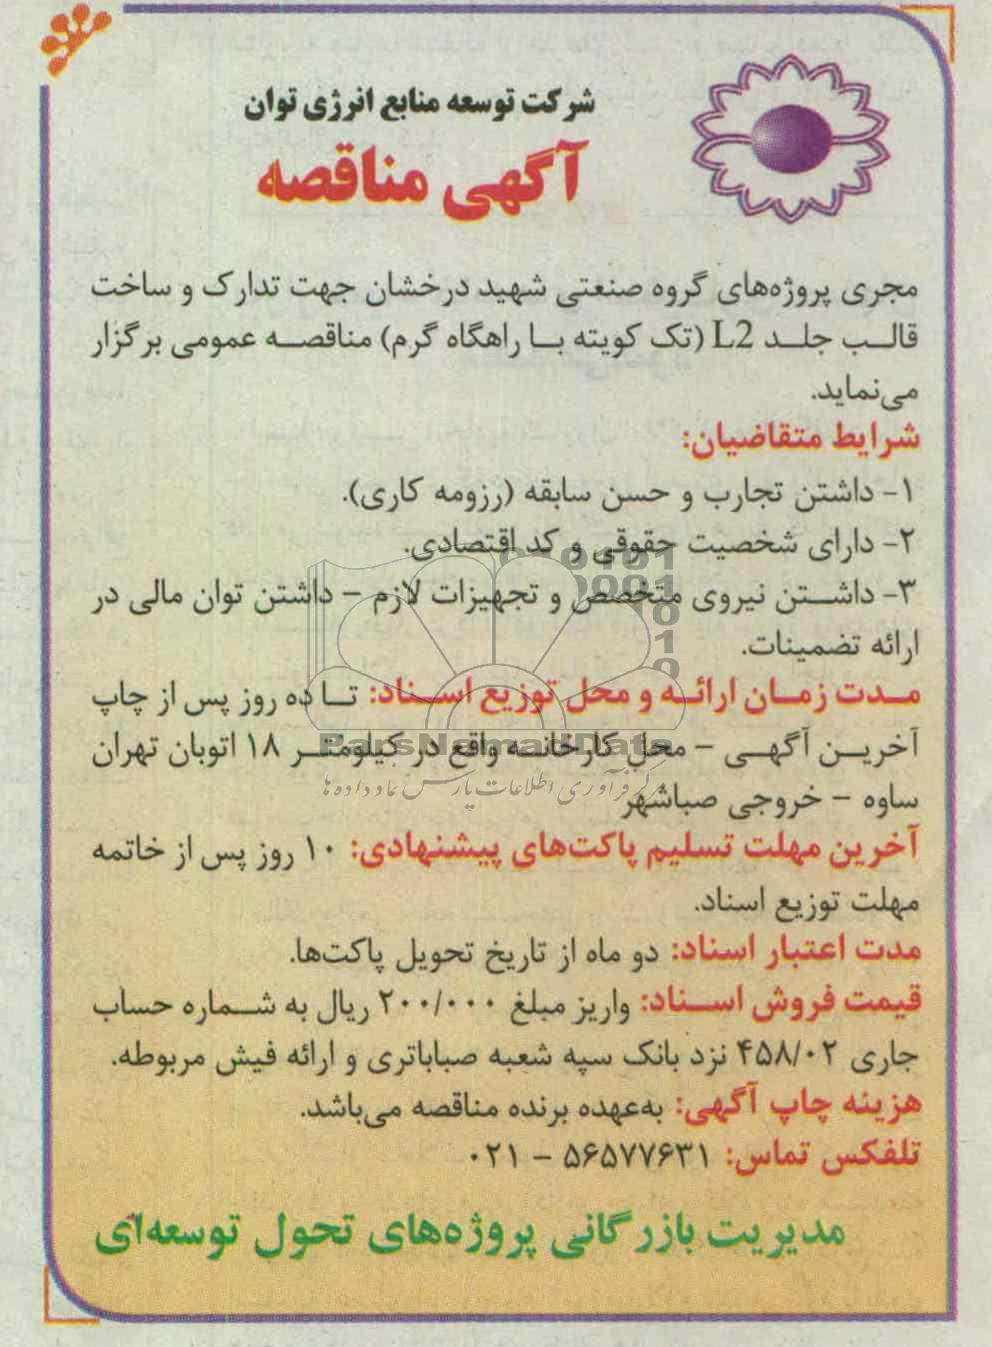 شرکت توسعه منابع انرژی توان
آگهی مناقصه
مجری پروژه‌های گروه صنعتی شهید درخشان جهت تدارک و ساخت
قالب جلد L2 (تک کویته با راهگاه گرم) مناقصه عمومی برگزار
می‌نماید.
شرایط متقاضیان:
۱- داشتن تجارب و حسن سابقه (رزومه کاری).
۲- دارای شخصیت حقوقی و کد اقتصادی.
۳- داشتن نیروی متخصص و تجهیزات لازم – داشتن توان مالی در
ارائه تضمینات.
مدت زمان ارائه و محل توزیع اسناد: تا ده روز پس از چاپ
آخرین آگهی – محل کارخانه واقع در کیلومتر ۱۸ اتوبان تهران
ساوه – خروجی صباشهر
ParsNamadData
مرکز فرآوری اطلاعات پارس نماد داده ها
آخرین مهلت تسلیم پاکت‌های پیشنهادی: ۱۰ روز پس از خاتمه
مهلت توزیع اسناد.
مدت اعتبار اسناد: دو ماه از تاریخ تحویل پاکت‌ها.
قیمت فروش اسناد: واریز مبلغ ۲۰۰/۰۰۰ ریال به شماره حساب
جاری ۴۵۸/۰۲ نزد بانک سپه شعبه صباباتری و ارائه فیش مربوطه.
هزینه چاپ آگهی: به‌عهده برنده مناقصه می‌باشد.
تلفکس تماس: ۵۶۵۷۷۶۳۱ – ۰۲۱
مدیریت بازرگانی پروژه‌های تحول توسعه‌ای